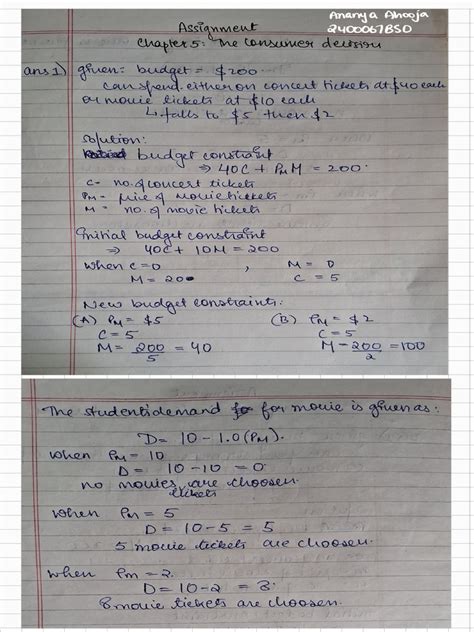 Ananya Ahooja
2400067BSO
Assignment
Chapter 5: The Consumer decision
ans 1) given: budget = $200
can spend either on concert tickets at $40 each
or movie tickets at $10 each
↳ falls to $5 then $2
Solution:
budget constraint
⇒ 40C + PMM = 200.
C = no. of concert tickets
PM = price of movie tickets
M = no. of movie tickets
Initial budget constraint
⇒ 40C + 10M = 200
When C = 0 , M = 0
M = 20 C = 5
New budget constraints:
(A) PM = $5 (B) PM = $2
C = 5 C = 5
M = 200/5 = 40 M = 200/2 = 100
The student demand for movie is given as:
D = 10 - 1.0 (PM).
When PM = 10
D = 10 - 10 = 0
no movies are choosen.
tickets
When PM = 5
D = 10 - 5 = 5
5 movie tickets are choosen.
When PM = 2
D = 10 - 2 = 8.
8 movie tickets are choosen.